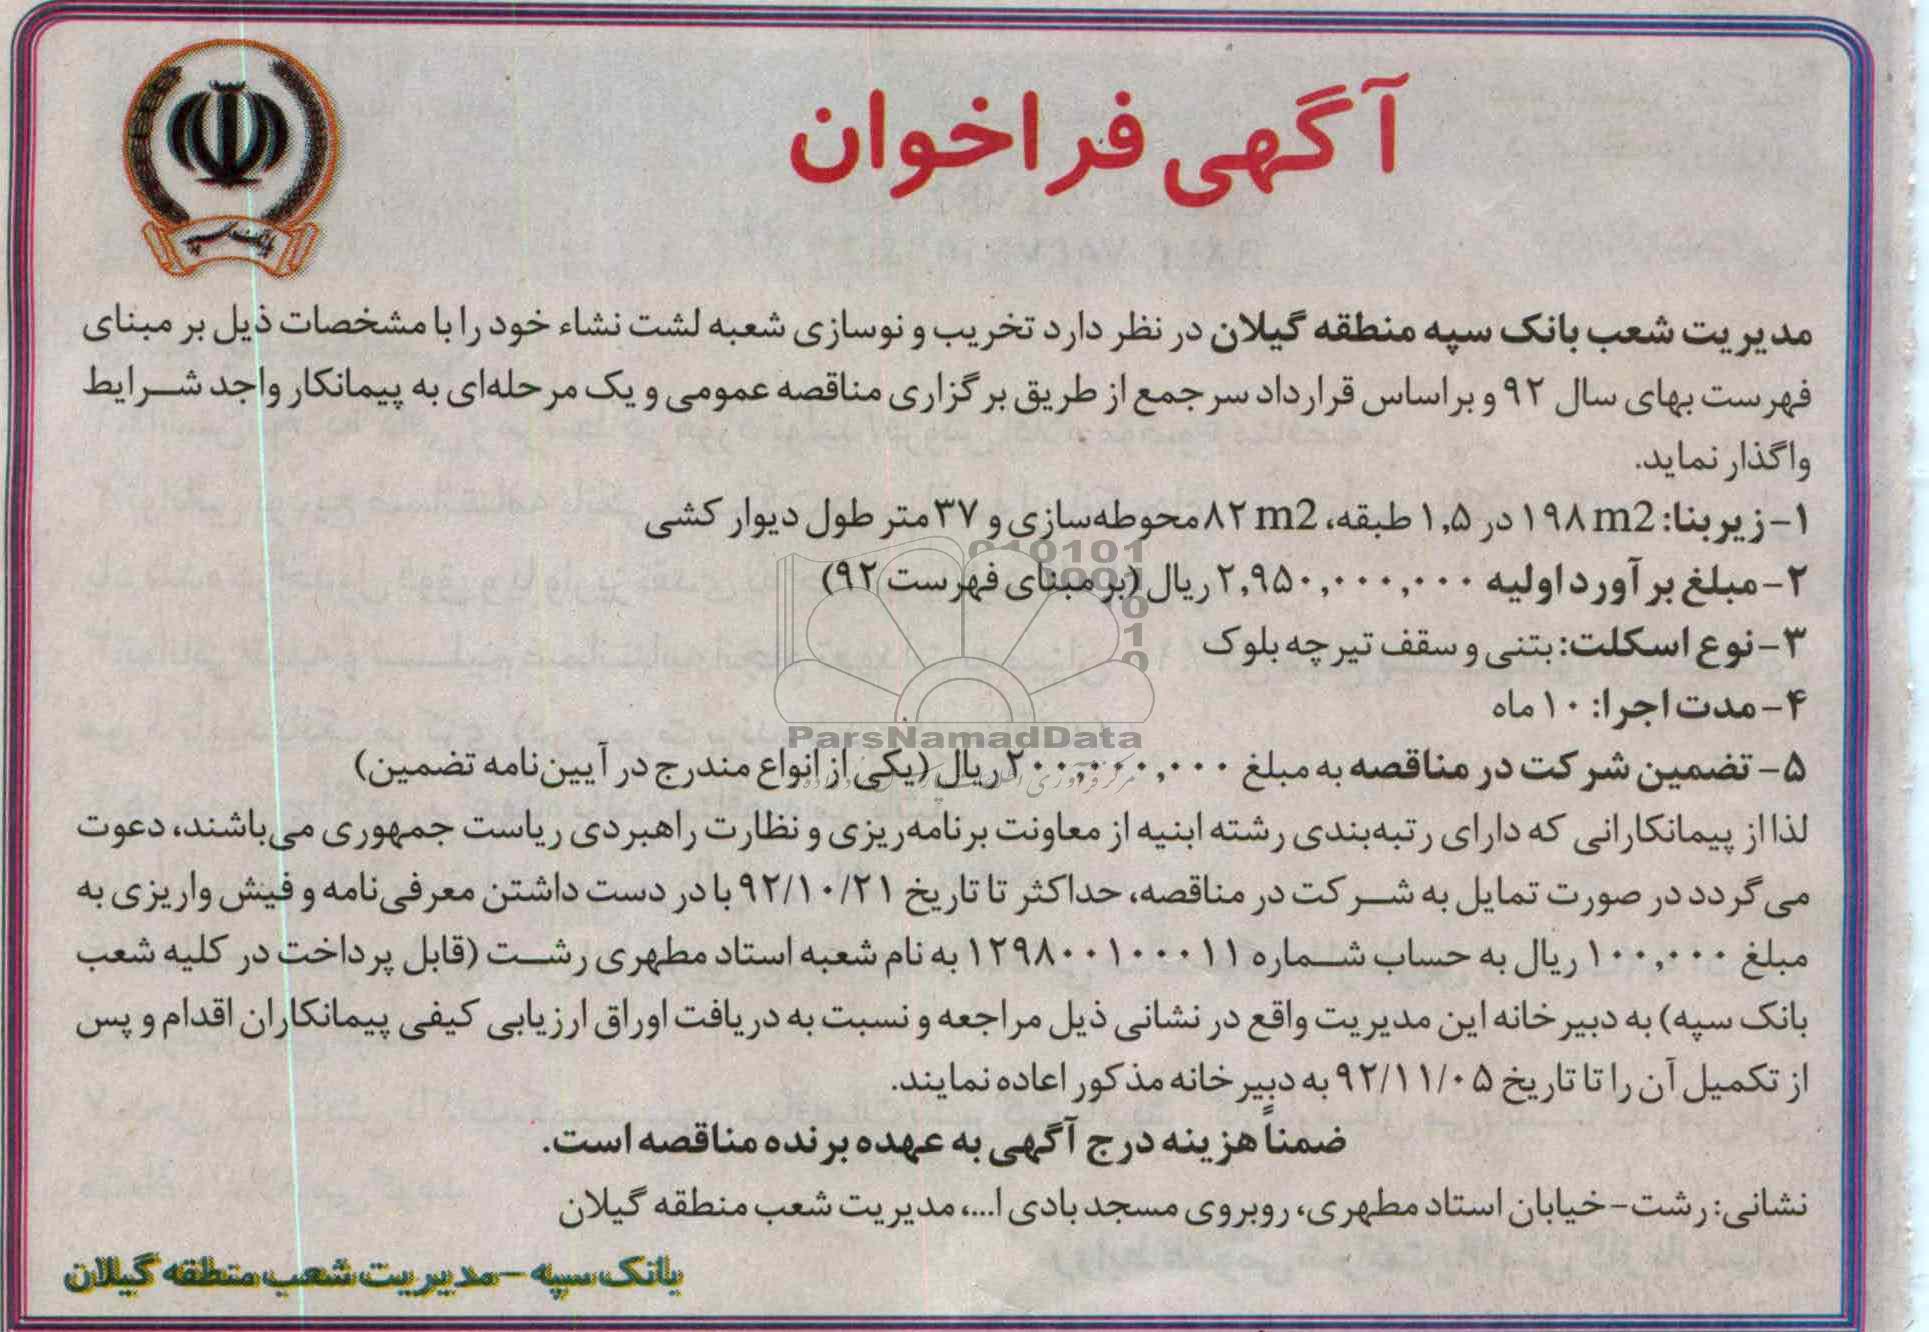 آگهی فراخوان
بانک سپه
مدیریت شعب بانک سپه منطقه گیلان در نظر دارد تخریب و نوسازی شعبه لشت نشاء خود را با مشخصات ذیل بر مبنای
فهرست بهای سال ۹۲ و براساس قرارداد سرجمع از طریق برگزاری مناقصه عمومی و یک مرحله‌ای به پیمانکار واجد شرایط
واگذار نماید.
۱- زیربنا: ۱۹۸ m2 در ۱٫۵ طبقه، ۸۲ m2 محوطه‌سازی و ۳۷ متر طول دیوار کشی
۲- مبلغ برآورد اولیه ۲,۹۵۰,۰۰۰,۰۰۰ ریال (بر مبنای فهرست ۹۲)
۳- نوع اسکلت: بتنی و سقف تیرچه بلوک
۴- مدت اجرا: ۱۰ ماه
ParsNamadData
۵- تضمین شرکت در مناقصه به مبلغ ۲۰۰,۰۰۰,۰۰۰ ریال (یکی از انواع مندرج در آیین‌نامه تضمین)
لذا از پیمانکارانی که دارای رتبه‌بندی رشته ابنیه از معاونت برنامه‌ریزی و نظارت راهبردی ریاست جمهوری می‌باشند، دعوت
می‌گردد در صورت تمایل به شرکت در مناقصه، حداکثر تا تاریخ ۹۲/۱۰/۲۱ با در دست داشتن معرفی‌نامه و فیش واریزی به
مبلغ ۱۰۰,۰۰۰ ریال به حساب شماره ۱۲۹۸۰۰۱۰۰۰۱۱ به نام شعبه استاد مطهری رشت (قابل پرداخت در کلیه شعب
بانک سپه) به دبیرخانه این مدیریت واقع در نشانی ذیل مراجعه و نسبت به دریافت اوراق ارزیابی کیفی پیمانکاران اقدام و پس
از تکمیل آن را تا تاریخ ۹۲/۱۱/۰۵ به دبیرخانه مذکور اعاده نمایند.
ضمناً هزینه درج آگهی به عهده برنده مناقصه است.
نشانی: رشت- خیابان استاد مطهری، روبروی مسجد بادی ا...، مدیریت شعب منطقه گیلان
بانک سپه - مدیریت شعب منطقه گیلان